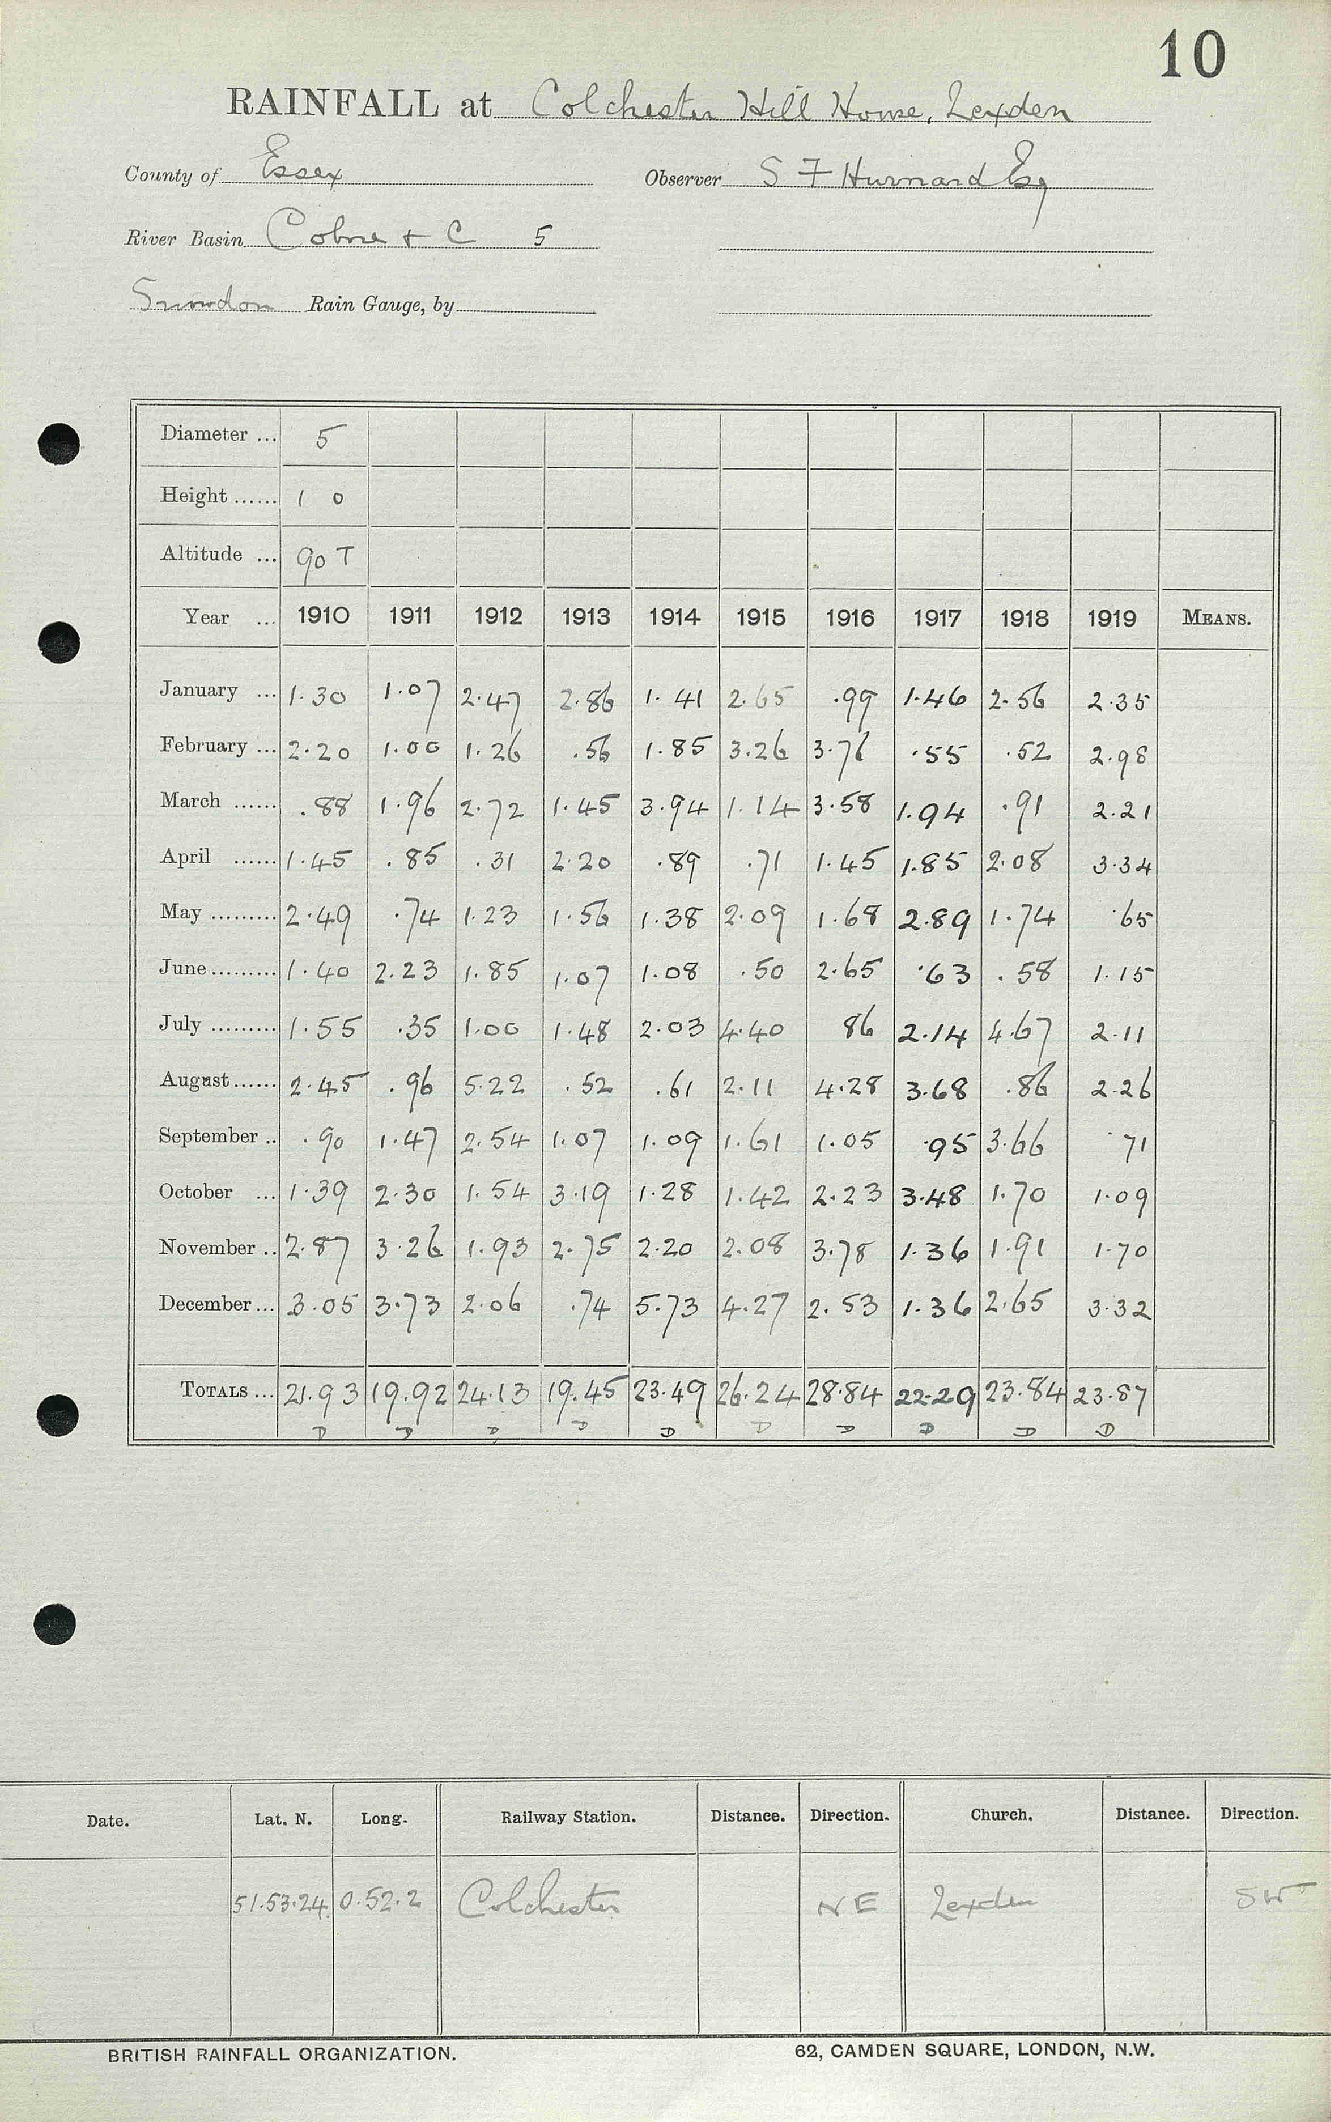 10
RAINFALL at Colchester Hill House, Lexden
County of Essex Observer S F Hurnard Esq
River Basin Colne + C 5
Snowdon Rain Gauge, by
Diameter ... 5
Height ...... 1 0
Altitude ... 90 T
Year ... 1910 1911 1912 1913 1914 1915 1916 1917 1918 1919 MEANS.
January ... 1.30 1.07 2.47 2.86 1.41 2.65 .99 1.46 2.56 2.35
February ... 2.20 1.00 1.26 .56 1.85 3.26 3.76 .55 .52 2.98
March ...... .88 1.96 2.72 1.45 3.94 1.14 3.58 1.94 .91 2.21
April ...... 1.45 .85 .31 2.20 .89 .71 1.45 1.85 2.08 3.34
May ......... 2.49 .74 1.23 1.56 1.38 2.09 1.68 2.89 1.74 .65
June ......... 1.40 2.23 1.85 1.07 1.08 .50 2.65 .63 .58 1.15
July ......... 1.55 .35 1.00 1.48 2.03 4.40 86 2.14 4.67 2.11
August ...... 2.45 .96 5.22 .52 .61 2.11 4.28 3.68 .86 2.26
September .. .90 1.47 2.54 1.07 1.09 1.61 1.05 .95 3.66 .71
October ... 1.39 2.30 1.54 3.19 1.28 1.42 2.23 3.48 1.70 1.09
November .. 2.87 3.26 1.93 2.75 2.20 2.08 3.78 1.36 1.91 1.70
December ... 3.05 3.73 2.06 .74 5.73 4.27 2.53 1.36 2.65 3.32
TOTALS ... 21.93 19.92 24.13 19.45 23.49 26.24 28.84 22.29 23.84 23.87
D D D D D D D D D D
Date. Lat. N. Long. Railway Station. Distance. Direction. Church. Distance. Direction.
51.53.24 0.52.2 Colchester NE Lexden SW
BRITISH RAINFALL ORGANIZATION. 62, CAMDEN SQUARE, LONDON, N.W.